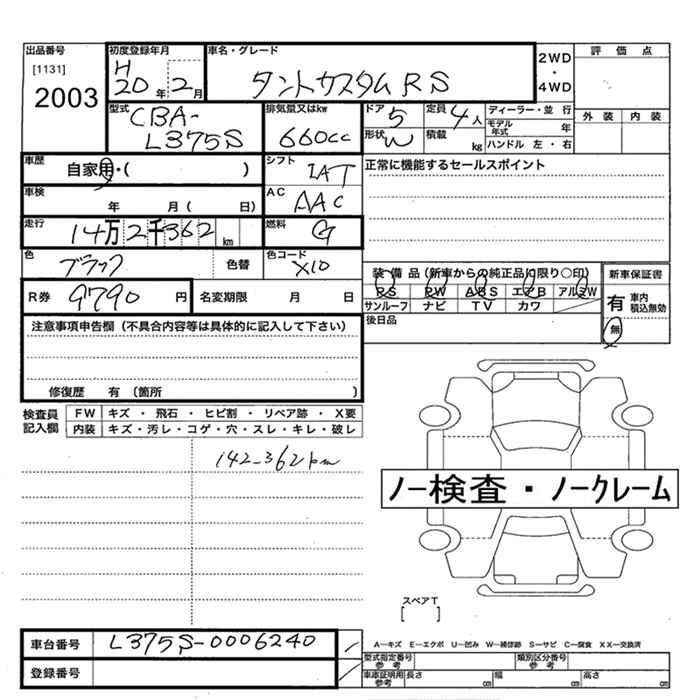 出品番号
[1131]
2003
初度登録年月
H
20年 2月
車名・グレード
タントカスタムRS
2WD
・
4WD
評価点
外装 内装
型式
CBA-
L375S
排気量又はkw
660cc
ドア
5
定員
4人
形状
W
積載
kg
ディーラー・並行
モデル
年式 年
ハンドル 左・右
車歴
自家用・( )
シフト
IAT
正常に機能するセールスポイント
車検
年 月( 日)
AC
AAC
走行
14万2千362km
燃料
G
色
ブラック
色替
色コード
X10
装備品(新車からの純正品に限り○印)
PS PW ABS エアB アルミW
サンルーフ ナビ TV カワ
後日品
新車保証書
有 車内
積込無効
無
R券 9790円
名変期限 月 日
注意事項申告欄(不具合内容等は具体的に記入して下さい)
修復歴 有(箇所 )
検査員
記入欄
FW キズ・飛石・ヒビ割・リペア跡・X要
内装 キズ・汚レ・コゲ・穴・スレ・キレ・破レ
142-362km
ノー検査・ノークレーム
スペアT
[ ]
車台番号 L375S-0006240
登録番号
A―キズ E―エクボ U―凹み W―補修跡 S―サビ C―腐食 XX―交換済
型式指定番号
参考
類別区分番号
参考
車庫証明用
参考
長さ cm
幅 cm
高さ cm